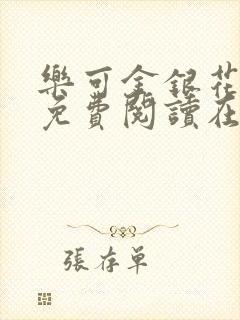 樂可金銀花
免費閱讀在
張存單